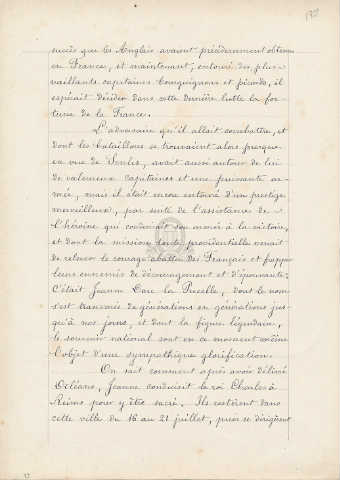 succès que les Anglais avaient précédemment obtenu
en France, et maintenant, entouré des plus
vaillants capitaines bourguignons et picards, il
espérait décider dans cette dernière lutte la for-
tune de la France.
L'adversaire qu'il allait combattre, et
dont les bataillons se trouvaient alors presque
en vue de Senlis, avait aussi autour de lui
de valeureux capitaines et une puissante ar-
mée, mais il était encore entouré d'un prestige
merveilleux, par suite de l'assistance de
l'héroïne qui conduisait son armée à la victoire,
et dont la mission toute providentielle venait
de relever le courage abattu des Français et frapper
leurs ennemis de découragement et d'épouvante;
C'était Jeanne Darc la Pucelle, dont le nom
s'est transmis de générations en générations jus-
qu'à nos jours, et dont la figure légendaire,
le souvenir national sont en ce moment même
l'objet d'une sympathique glorification.
On sait comment après avoir délivré
Orléans, Jeanne conduisit le roi Charles à
Reims pour y être sacré. Ils restèrent dans
cette ville du 16 au 21 juillet, puis se dirigèrent